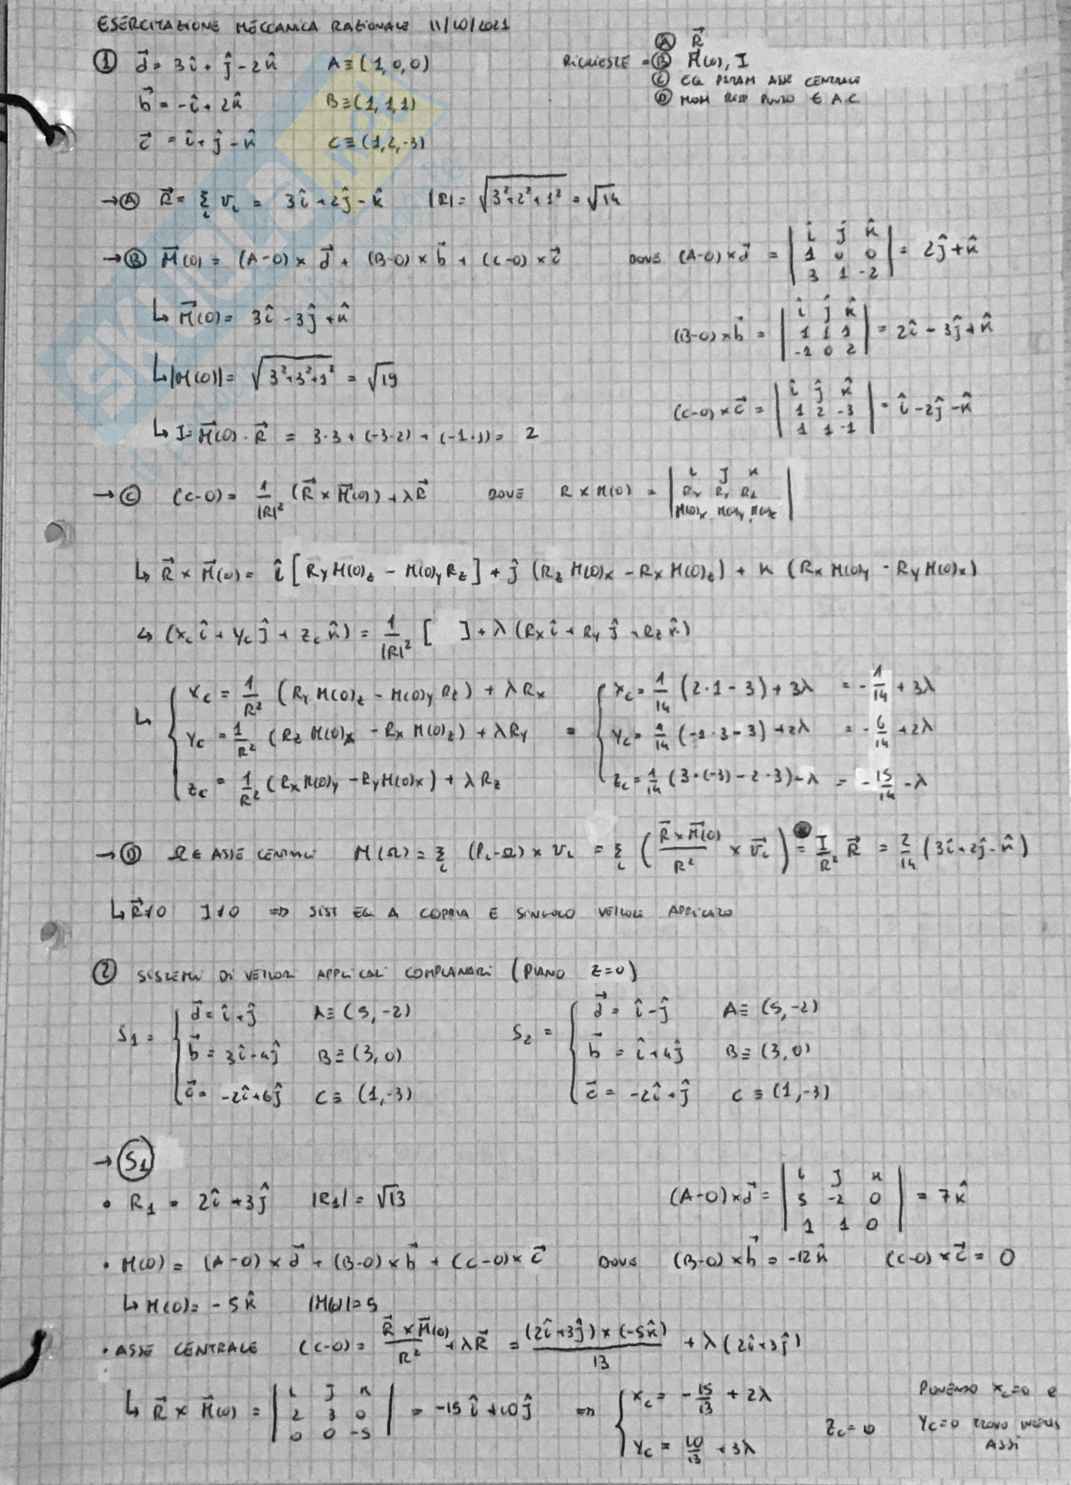 ESERCITAZIONE MECCANICA RAZIONALE 11/10/2021
① a⃗ = 3î + ĵ - 2k̂ A ≡ (1,0,0)
b⃗ = -î + 2k̂ B ≡ (1,1,1)
c⃗ = î + ĵ - k̂ C ≡ (1,2,-3)
RICHIESTE = Ⓐ R⃗
Ⓑ M⃗(O), I
Ⓒ EQ PARAM ASSE CENTRALE
Ⓓ MOM RISP PUNTO ∈ A.C
→ Ⓐ R⃗ = Σᵢ vᵢ = 3î + 2ĵ - k̂ |R| = √(3²+2²+1²) = √14
→ Ⓑ M⃗(O) = (A-O) × a⃗ + (B-O) × b⃗ + (C-O) × c⃗ DOVE (A-O) × a⃗ = | î ĵ k̂ | 1 0 0 | 3 1 -2 | = 2ĵ + k̂
↳ M⃗(O) = 3î - 3ĵ + k̂
(B-O) × b⃗ = | î ĵ k̂ | 1 1 1 | -1 0 2 | = 2î - 3ĵ + k̂
↳ |M(O)| = √(3²+3²+1²) = √19
(C-O) × c⃗ = | î ĵ k̂ | 1 2 -3 | 1 1 -1 | = î - 2ĵ - k̂
↳ I = M⃗(O) · R⃗ = 3·3 + (-3·2) + (-1·1) = 2
→ Ⓒ (C-O) = 1/|R|² (R⃗ × M⃗(O)) + λR⃗ DOVE R × M(O) = | i j k | Rx Ry Rz | M(O)x M(O)y M(O)z |
↳ R⃗ × M⃗(O) = î [Ry M(O)z - M(O)y Rz] + ĵ (Rz M(O)x - Rx M(O)z) + k (Rx M(O)y - Ry M(O)x)
↳ (xc î + yc ĵ + zc k̂) = 1/|R|² [ ] + λ (Rx î + Ry ĵ + Rz k̂)
↳ { xc = 1/R² (Ry M(O)z - M(O)y Rz) + λRx = { xc = 1/14 (2·1 - 3) + 3λ = -1/14 + 3λ
yc = 1/R² (Rz M(O)x - Rx M(O)z) + λRy yc = 1/14 (-1·3 - 3) + 2λ = -6/14 + 2λ
zc = 1/R² (Rx M(O)y - Ry M(O)x) + λRz zc = 1/14 (3·(-3) - 2·3) - λ = -15/14 - λ
→ Ⓓ Ω ∈ ASSE CENTRALE M(Ω) = Σᵢ (Pᵢ - Ω) × vᵢ = Σᵢ ( R⃗ × M⃗(O) / R² × v⃗ᵢ ) = I/R² R⃗ = 2/14 (3î + 2ĵ - k̂)
↳ R⃗ ≠ 0 I ≠ 0 ⇒ SIST EQ A COPPIA E SINGOLO VETTORE APPLICATO
② SISTEMI DI VETTORI APPLICATI COMPLANARI (PIANO Z=0)
S₁ = { a⃗ = î + ĵ A ≡ (5,-2)
b⃗ = 3î - 4ĵ B ≡ (3,0)
c⃗ = -2î + 6ĵ C ≡ (1,-3)
S₂ = { a⃗ = î - ĵ A ≡ (5,-2)
b⃗ = î + 4ĵ B ≡ (3,0)
c⃗ = -2î + ĵ C ≡ (1,-3)
→ S₁
• R₁ = 2î + 3ĵ |R₁| = √13 (A-O) × a⃗ = | i j k | 5 -2 0 | 1 1 0 | = 7k̂
• M(O) = (A-O) × a⃗ + (B-O) × b⃗ + (C-O) × c⃗ DOVE (B-O) × b⃗ = -12k̂ (C-O) × c⃗ = 0
↳ M(O) = -5k̂ |M(O)| = 5
• ASSE CENTRALE (C-O) = R⃗ × M⃗(O) / R² + λR⃗ = (2î + 3ĵ) × (-5k̂) / 13 + λ(2î + 3ĵ)
↳ R⃗ × M⃗(O) = | i j k | 2 3 0 | 0 0 -5 | = -15î + 10ĵ ⇒ { xc = -15/13 + 2λ
yc = 10/13 + 3λ
zc = 0
PONENDO xc=0 e
yc=0 TROVO INTERS
ASSI